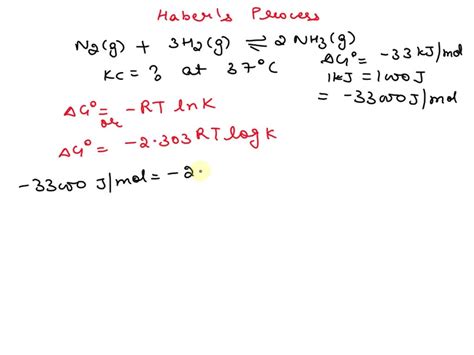 Haber's Process
N₂(g) + 3H₂(g) ⇌ 2 NH₃(g)
KC = ? at 37°C
ΔG° = -33 kJ/mol
1kJ = 1000 J
= -33000 J/mol
ΔG° = -RT lnK
or
ΔG° = -2.303 RT log K
-33000 J/mol = -2.